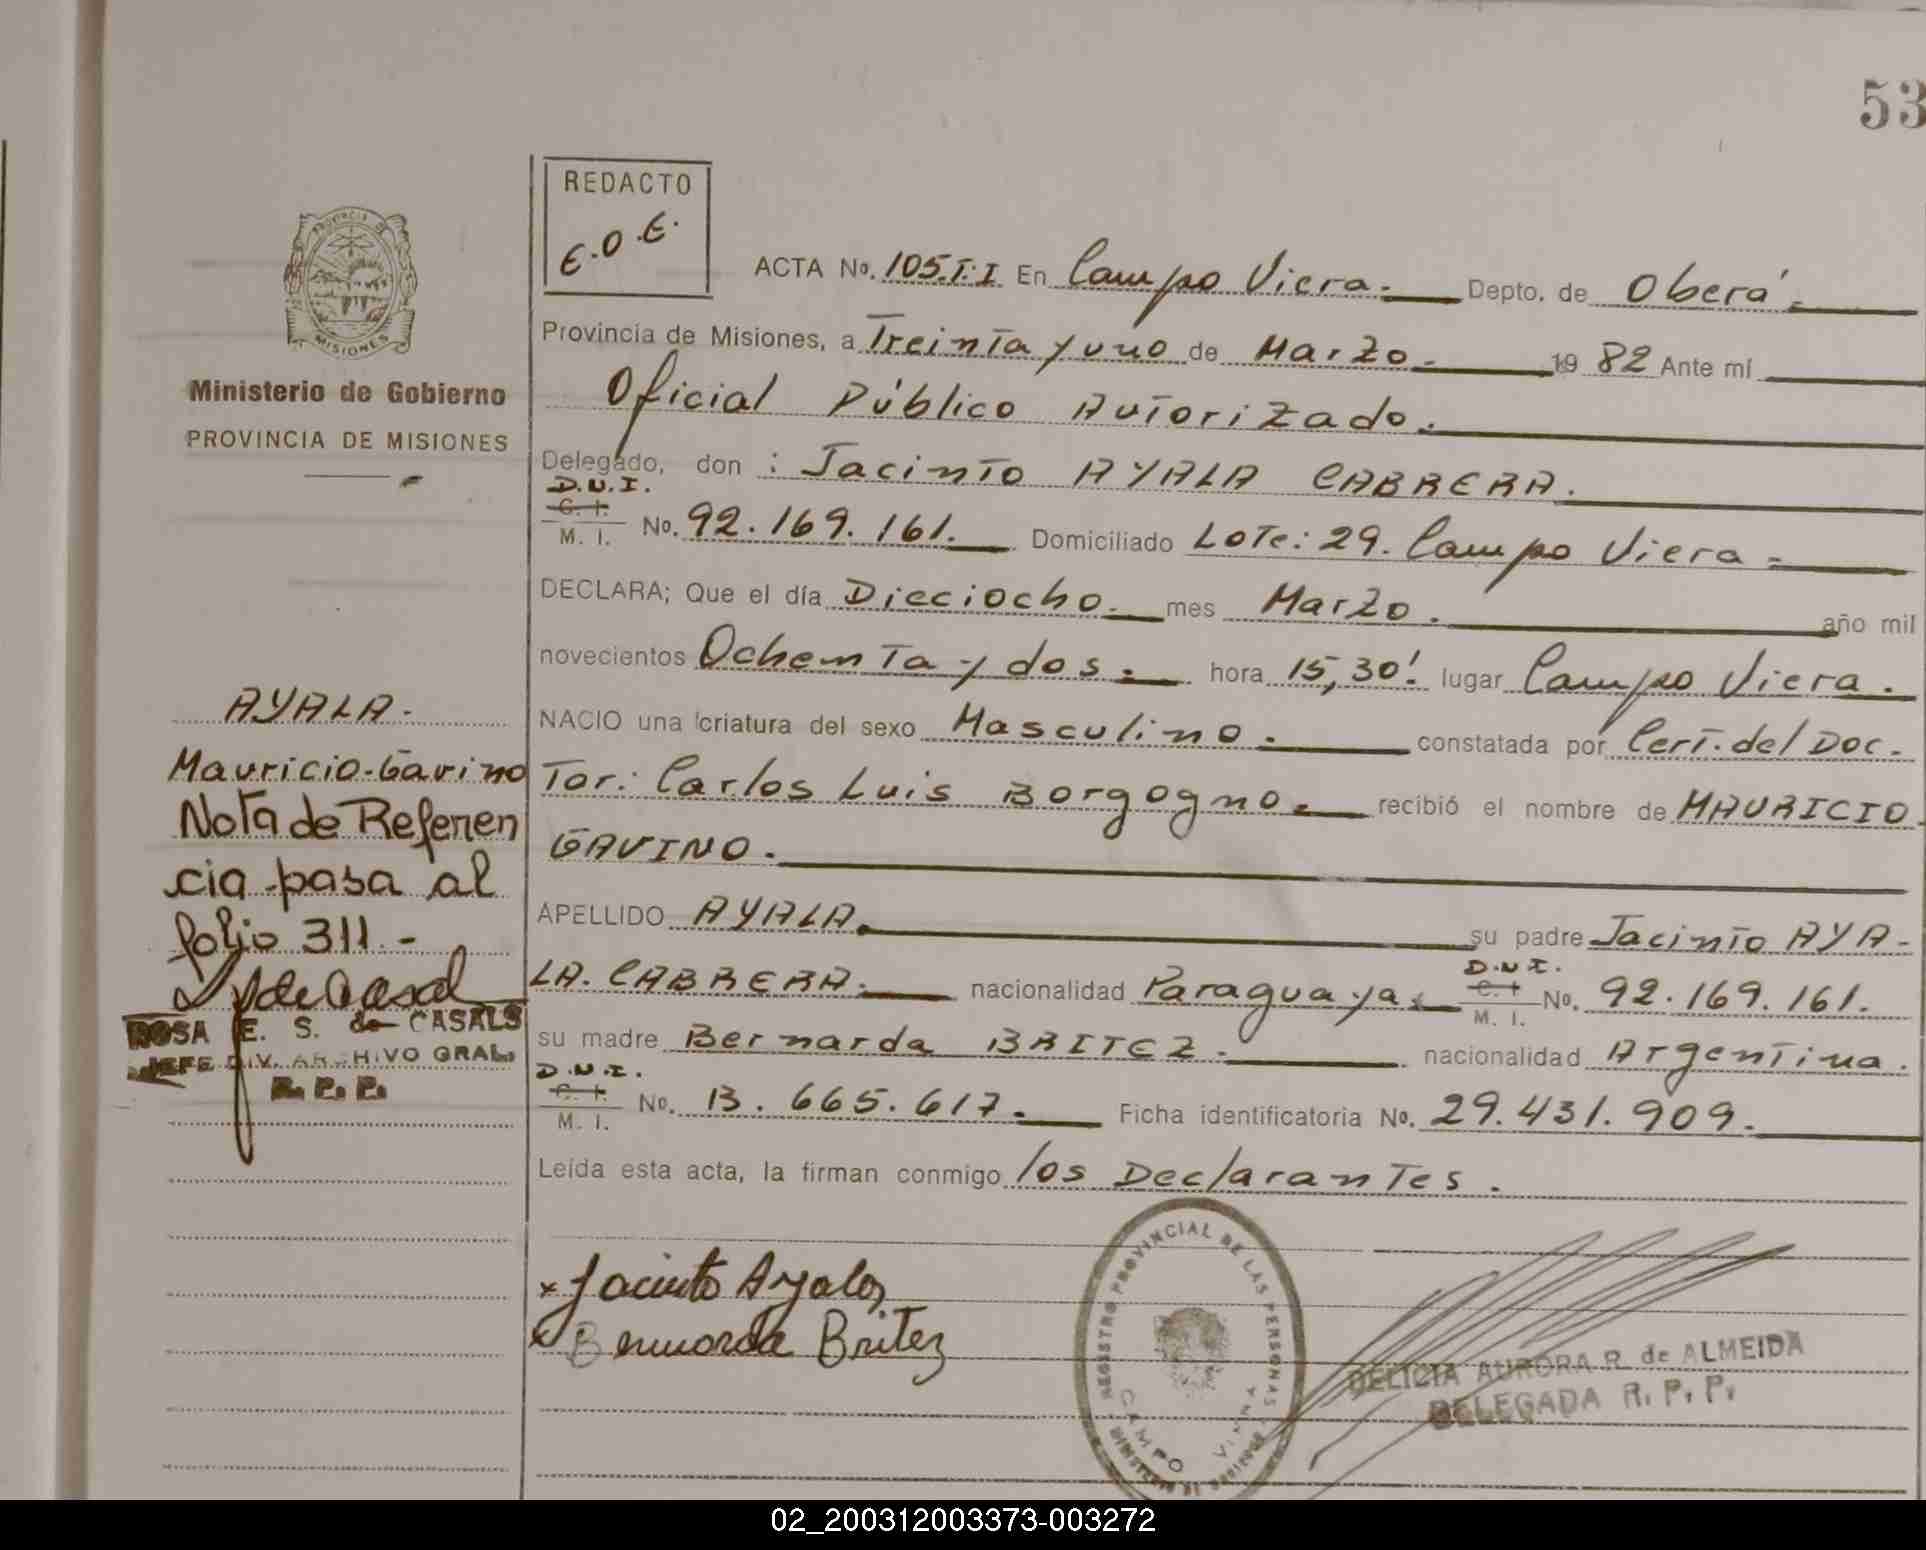 53
REDACTO
E.O.E.
PROVINCIA DE
MISIONES
Ministerio de Gobierno
PROVINCIA DE MISIONES
ACTA No. 105.T:I En Campo Viera.- Depto. de Oberá.-
Provincia de Misiones, a Treinta y uno de Marzo.- 19 82 Ante mí
Oficial Público Autorizado.
Delegado, don : Jacinto AYALA CABRERA.
D.N.I.
C. I.
M. I. No. 92.169.161. Domiciliado Lote: 29. Campo Viera -
DECLARA; Que el día Dieciocho. mes Marzo. año mil
novecientos Ochenta y dos. hora 15,30! lugar Campo Viera.
NACIO una criatura del sexo Masculino. constatada por Cert. del Doc-
tor: Carlos Luis Borgogno. recibió el nombre de MAURICIO
GAVINO.
APELLIDO AYALA. su padre Jacinto AYA-
LA. CABRERA. nacionalidad Paraguaya.
D.N.I.
C. I.
M. I. No. 92.169.161.
su madre Bernarda BRITEZ. nacionalidad Argentina.
D.N.I.
C. I.
M. I. No. 13.665.617. Ficha identificatoria No. 29.431.909.
Leída esta acta, la firman conmigo los Declarantes.
x Jacinto Ayala
x Bernarda Britez
AYALA.
Mauricio-Gavino
Nota de Referen
cia pasa al
folio 311.-
ROSA E. S. de CASALS
JEFE DIV. ARCHIVO GRAL.
R. P. P.
REGISTRO PROVINCIAL DE LAS PERSONAS
CAMPO VIERA
MISIONES
DELICIA AURORA R. de ALMEIDA
DELEGADA R. P. P.
02_200312003373-003272